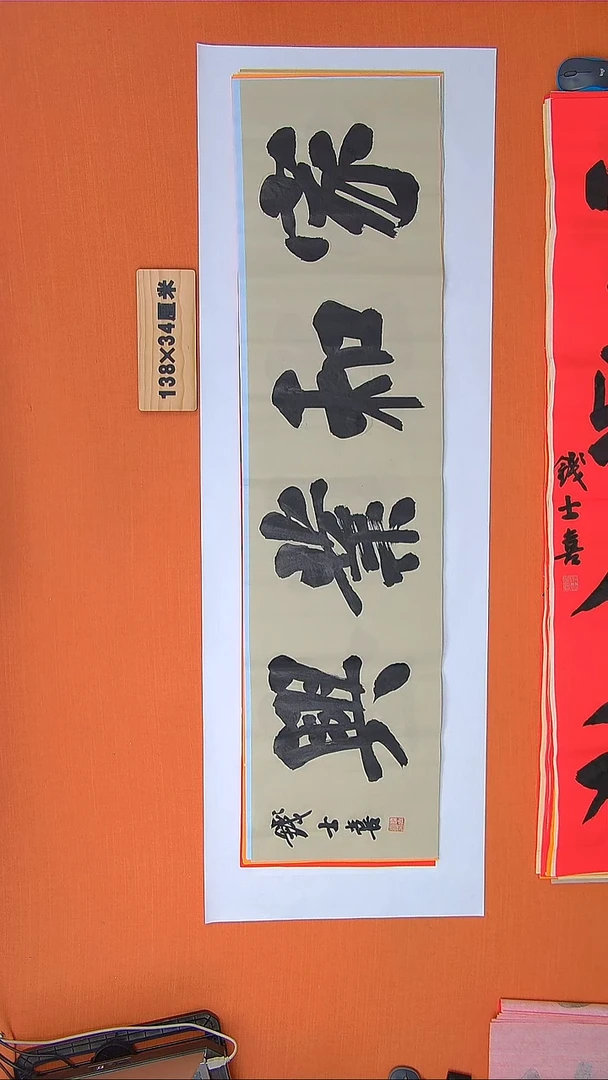 家和業興
錢士喜
138×34厘米
錢士喜